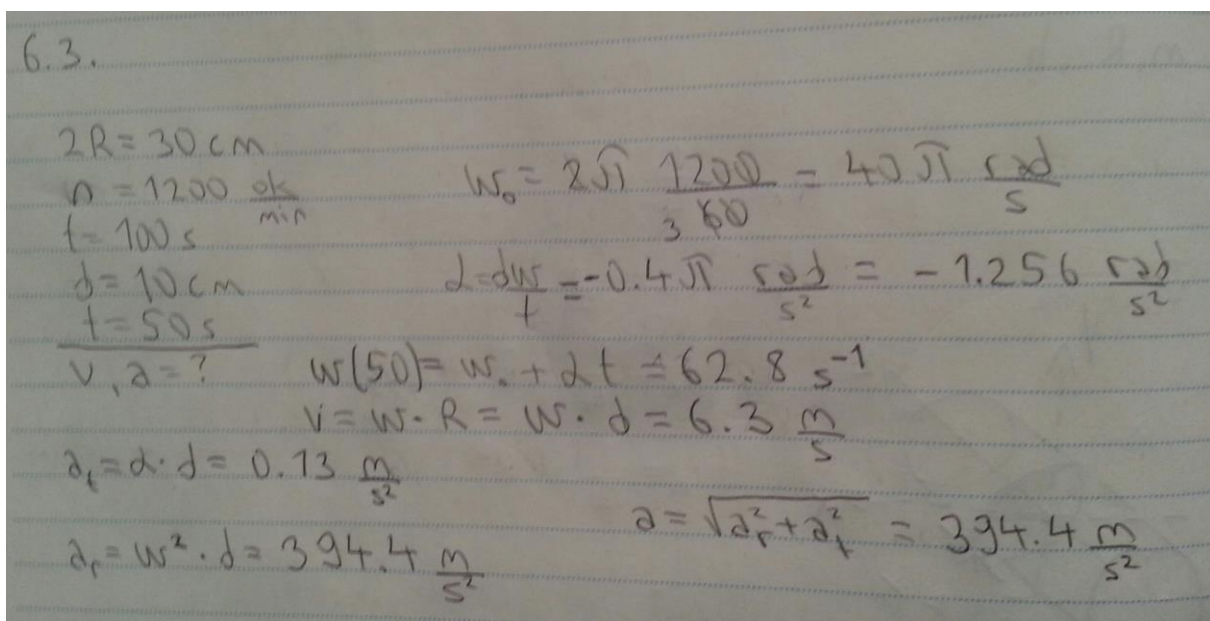 6.3.
2R = 30 cm
n = 1200 ok/min
t = 100 s
d = 10 cm
t = 50 s
v, a = ?
w₀ = 2π 1200/60 = 40π rad/s
3
α = dw/t = -0.4π rad/s² = -1.256 rad/s²
w(50) = w₀ + αt = 62.8 s⁻¹
v = w · R = w · d = 6.3 m/s
aₜ = α · d = 0.13 m/s²
aᵣ = w² · d = 394.4 m/s²
a = √(aᵣ² + aₜ²) = 394.4 m/s²